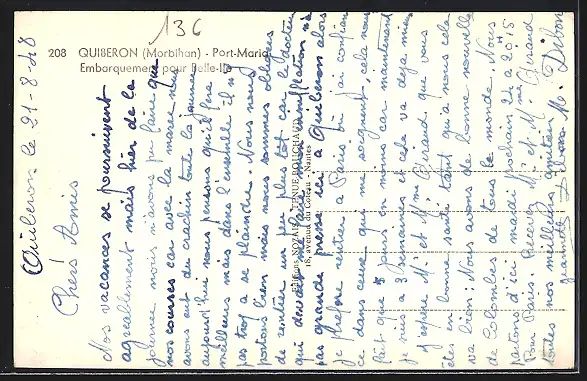 136
208 QUIBERON (Morbihan) - Port-Maria
Embarquement pour Belle-Ile
Quiberon le 21-8-48
Chers Amis
Nos vacances se poursuivent
agréablement mais hier de la
journée nous n'avons pu faire que
nos courses car avec la marée nous
avons eut du crachin toute la journée
aujourd'hui nous pensons qu'il fera
meilleurs mais dans l'ensemble il n'y
pas trop a se plaindre. Nous nous
portons bien mais nous sommes obligés
de rentier un peu plus tot car le docteur
qui me faire mon
pas grande presse ici a Quiberon alors
je préfere rentrer a Paris ou j'ai confiance
dans ceux qui me soignent, cela nous
fait que 8 jours en moins car maintenant
je suis a 3 semaines et cela va déja mieux
J'espère Mr et Mme Giraud que vous
êtes en bonne santé tant qu'a nous cela
va bien. Nous avons de bonne nouvelle
de Colombes de tous le monde. Nous
partons d'ici mardi prochain 24 a 20 h 15
Pour Paris. Recevez Mr et Mme Giraud
toutes nos meilleurs
M. Dibon
Editions NOZAIS
18, Avenue du Coteau - Nantes